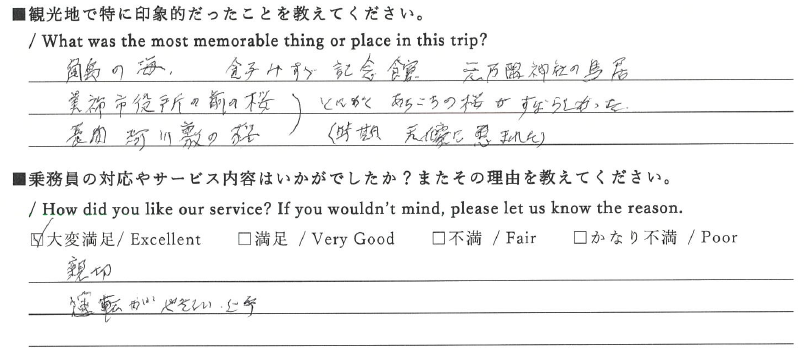 ■観光地で特に印象的だったことを教えてください。
/ What was the most memorable thing or place in this trip?
角島の海、 金子みすゞ記念館 元乃隅神社の鳥居
美祢市役所の前の桜 ) とにかくあちこちの桜がすばらしかった
長門 河川敷の桜 (時期、天候に恵まれた)
■乗務員の対応やサービス内容はいかがでしたか？またその理由を教えてください。
/ How did you like our service? If you wouldn't mind, please let us know the reason.
☑大変満足 / Excellent □満足 / Very Good □不満 / Fair □かなり不満 / Poor
親切
運転が